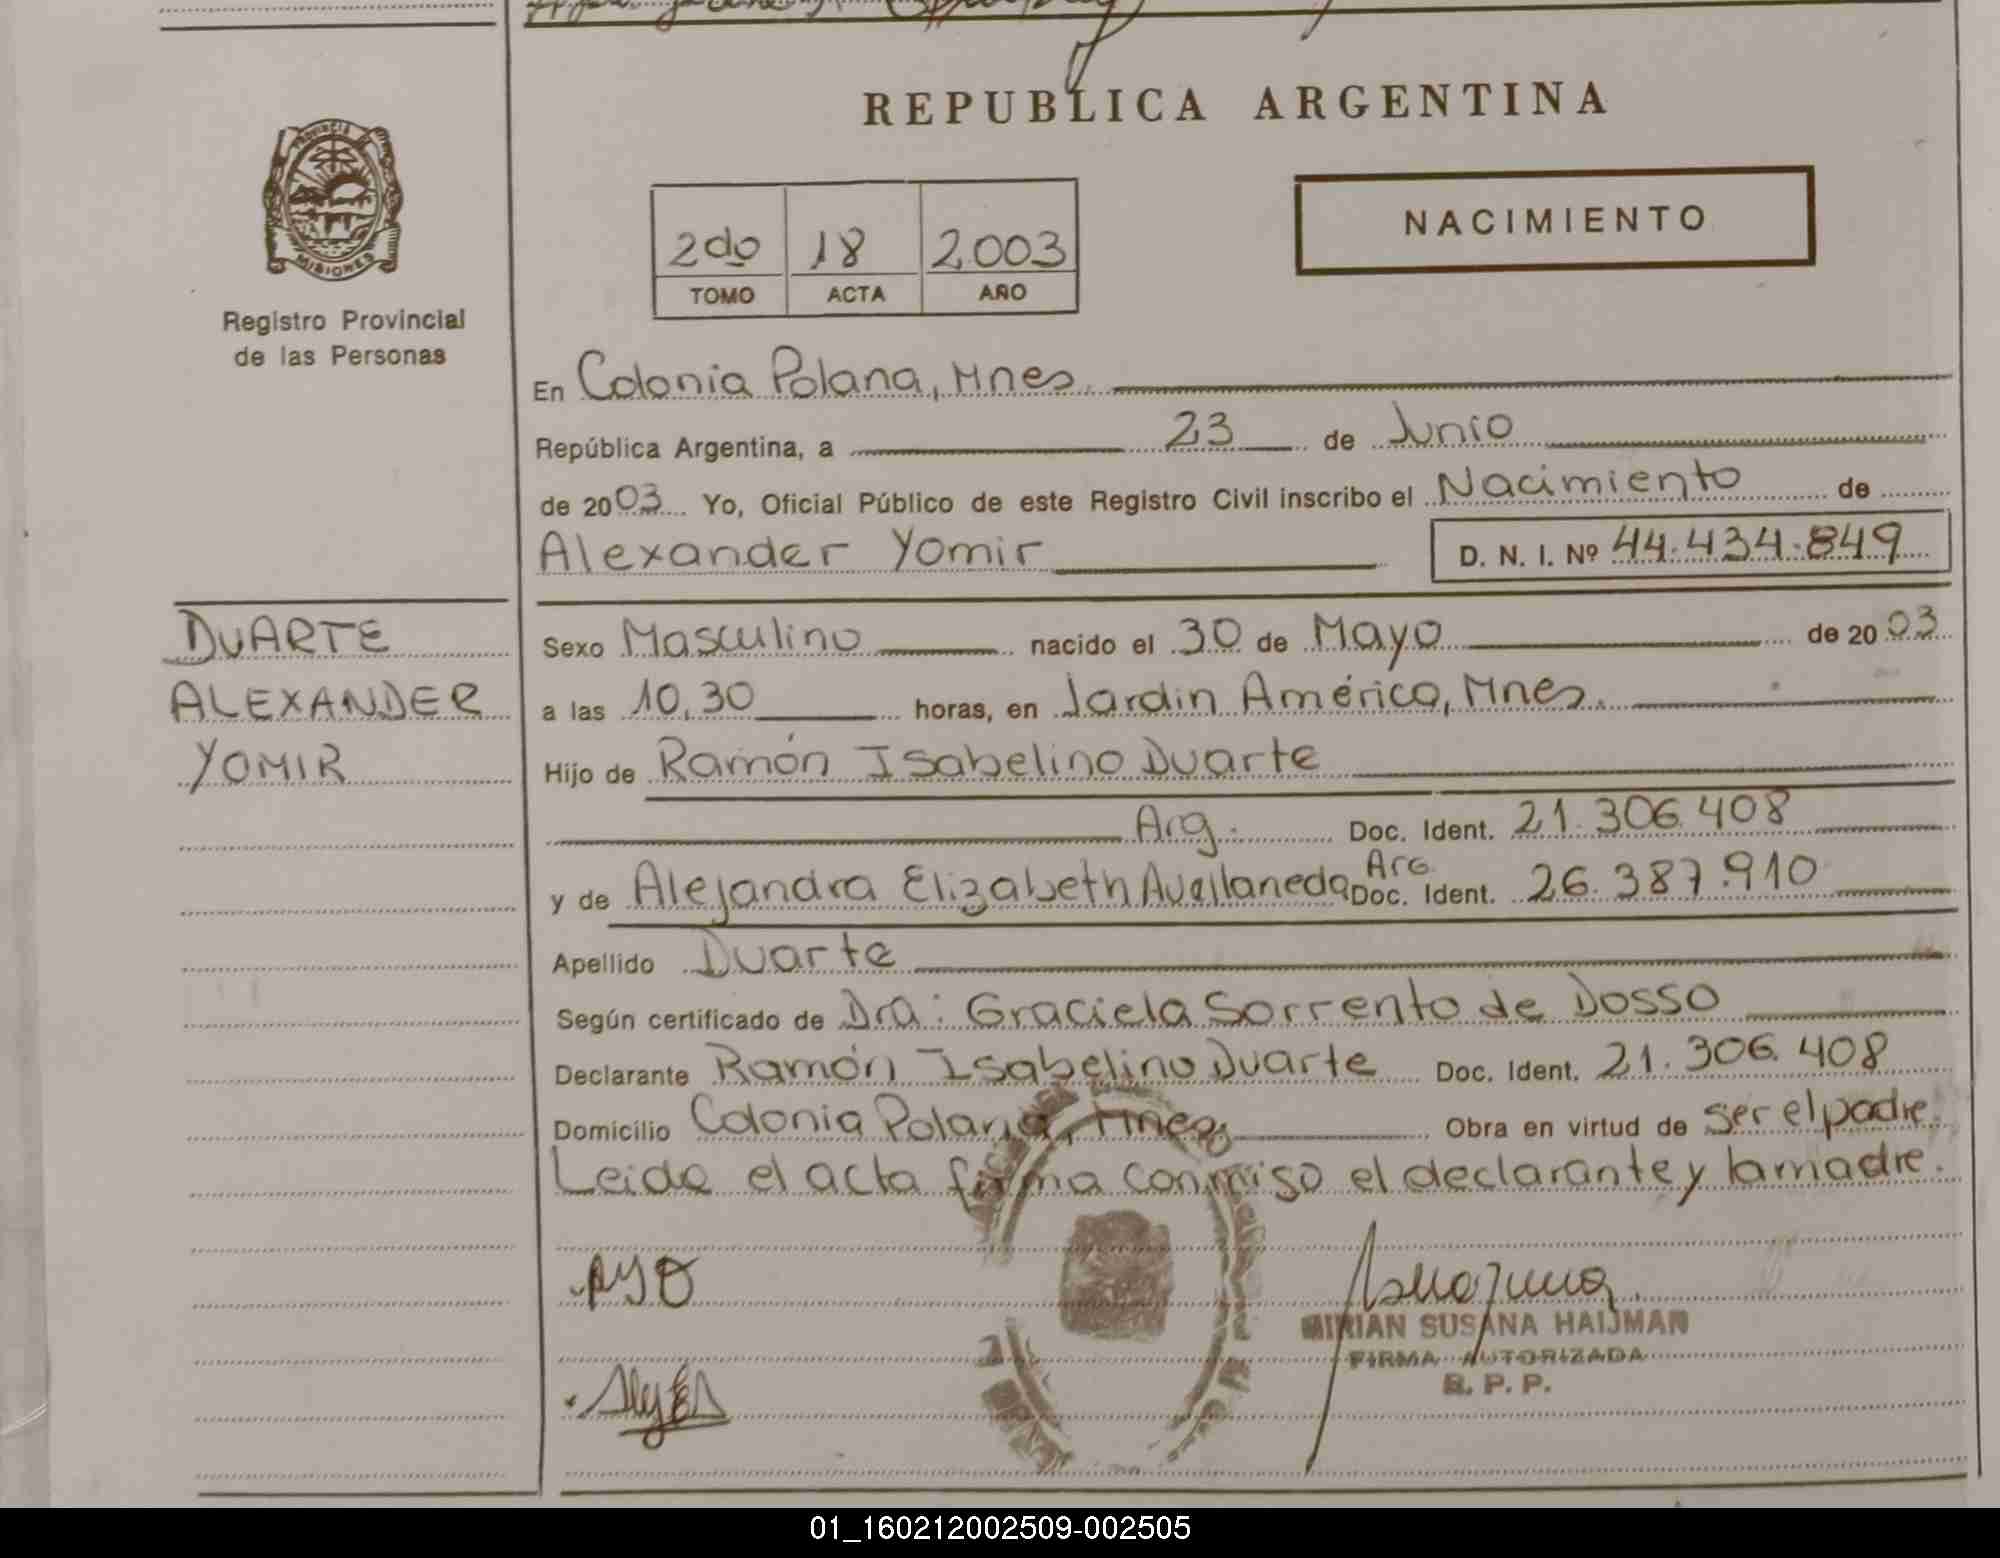 REPUBLICA ARGENTINA
PROVINCIA
MISIONES
Registro Provincial
de las Personas
NACIMIENTO
2do 18 2.003
TOMO ACTA AÑO
En Colonia Polana, Mnes.
República Argentina, a 23 de Junio
de 2003 Yo, Oficial Público de este Registro Civil inscribo el Nacimiento de
Alexander Yomir D. N. I. Nº 44.434.849
DUARTE
ALEXANDER
YOMIR
Sexo Masculino nacido el 30 de Mayo de 2003
a las 10,30 horas, en Jardin América, Mnes.
Hijo de Ramón Isabelino Duarte
Arg. Doc. Ident. 21.306.408
y de Alejandra Elizabeth Avellaneda Arg. Doc. Ident. 26.387.910
Apellido Duarte
Según certificado de Dra: Graciela Sorrento de Dosso
Declarante Ramón Isabelino Duarte Doc. Ident. 21.306.408
Domicilio Colonia Polana, Mnes. Obra en virtud de ser el padre.
Leida el acta firma conmigo el declarante y la madre.
MIRIAN SUSANA HAIJMAN
FIRMA AUTORIZADA
R. P. P.
01_160212002509-002505